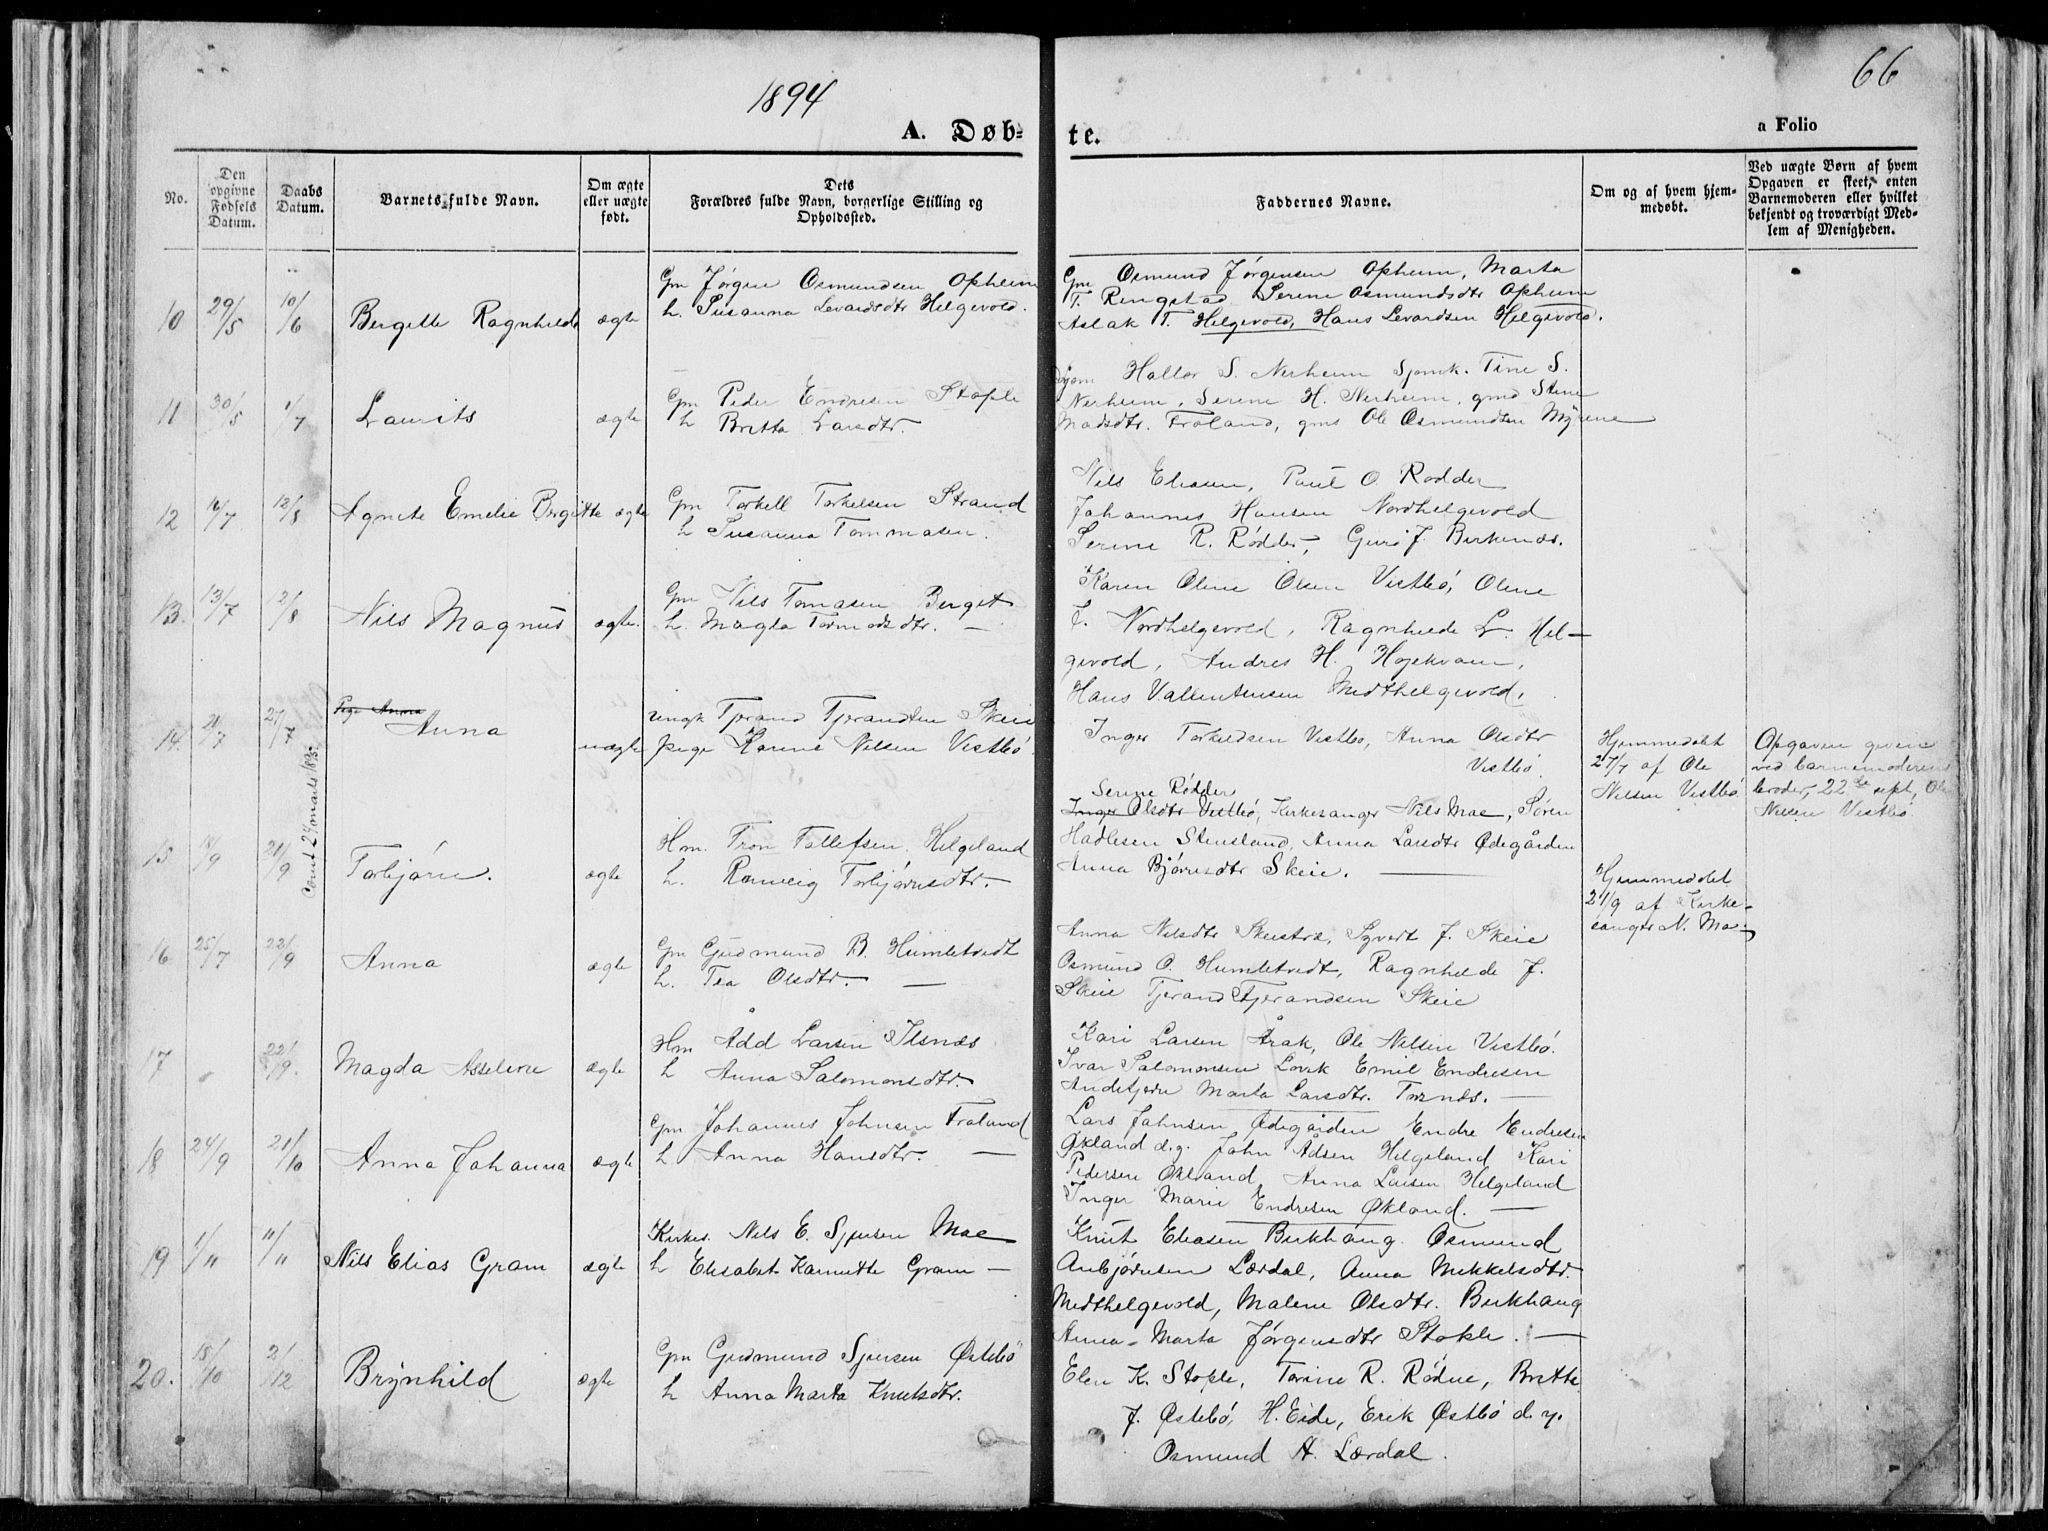 1894
66
A. Døb-
te.
a Folio
No.
Den
opgivne
Fødsels
Datum.
Daabs
Datum.
Barnets fulde Navn.
Om ægte
eller uægte
født.
Dets
Forældres fulde Navn, borgerlige Stilling og
Opholdssted.
Faddernes Navne.
Om og af hvem hjem-
medøbt.
Ved uægte Børn af hvem
Opgaven er skeet, enten
Barnemoderen eller hvilket
bekjendt og troværdigt Med-
lem af Menigheden.
10 29/5 10/6 Bergette Ragnhilde ægte
Gm Jørgen Osmundsen Opheim
h. Susanna Levardsdtr Helgevold.
Gm Osmund Jørgensen Opheim, Marta
T. Ringstad Serine Osmundsdtr Opheim
Aslak T. Helgevold, Hans Levardsen Helgevold.
11 30/5 1/7 Laurits ægte
Gm Peder Endresen Stople
h Britta Larsdtr.
Hallor S. Nerheim Tine S.
Nerheim, Serine H. Nerheim, gmd Stine
Madsdtr. Froland, gms Ole Osmundsen Myrene
12 16/7 12/8 Agnete Emelie Bergitte ægte
Gm Torkell Torkelsen Strand
h Susanna Tommasen.
Nils Eliasen, Paul O. Rødder
Johannes Hansen Nordhelgevold
Serine R. Rødder, Guro J. Birkenæs.
13. 13/7 12/8 Nils Magnus ægte.
Gm Nils Tomasen Berget
h. Magla Tormodsdtr. —
Karen Oline Olsen Vestbø, Olene
J. Nordhelgevold, Ragnhilde L. Hel-
gevold, Andres H. Højekvam,
Hans Vallentinsen Midthelgevold.
14. 21/7 27/7 Pige Anna
Anna uægte
ungk Tjerand Tjerandsen Skeie
pige Karine Nilsen Vestbø
Inger Torkeldsen Vestbø, Anna Olsdtr
Vestbø.
Hjemmedøbt
27/7 af Ole
Nilsen Vestbø
Opgaven given
ved barnemoderens
broder, 22de sept, Ole
Nilsen Vestbø
15 18/9 21/9 Torbjørn. ægte
Hm. Tron Tollefsen Helgeland
h. Ranveig Torbjørnsdtr. —
Serine Rødder
Inger Olsdtr Vestbø, Kirkesanger Nils Moe, Søren
Hadlesen Stensland, Anna Larsdtr Ødegården
Anna Bjørnsdtr Skeie. —
Hjemmedøbt
21/9 af Kirke-
sanger N. Mo.
16 25/7 23/9 Anna ægte
Gm Gudmund B. Humletvedt
h. Tea Olsdtr. —
Anna Nilsdtr Skeistra, Syvert J. Skeie
Osmund O. Humletvedt, Ragnhilde J.
Skeie Tjerand Tjerandsen Skeie
17 22/9. Magda Asseline ægte
Hm Ådd Larsen Ilsnæs
h Anna Salomonsdtr.
Kari Larsen Årak, Ole Nilsen Vestbø.
Ivar Salomonsen Lovik Emil Endresen
Marta Larsdtr. Tornæs. —
18 24/9 21/10 Anna Johanna ægte
Gm Johannes Johnsen Froland
h Anna Hansdtr. —
Lars Johnsen Ødegården Endre Endresen
Økland d.y. John Ådsen Helgeland Kari
Pedersen Økland Anna Larsen Helgeland
Inger Marie Endresen Økland. —
19 1/11 11/11 Nils Elias Gram ægte
Kirkes. Nils E. Sjursen Moe
h Elisabet Kamitte Gram —
Knut Eliasen Birkhaug. Osmund
Anbjørnsen Lærdal, Anna Mikkelsdtr.
Midthelgevold, Malene Olsdtr. Birkhaug
Anna-Marta Jørgensdtr Stople. —
20. 15/10 2/12 Brynhild ægte
Gm Gudmund Sjursen Østebø
h Anna Marta Knutsdtr.
Elen K. Stople, Torine R. Rødne, Britte
J. Østebø, H. Eide, Erik Østbø d.y.
Osmund A. Lærdal.